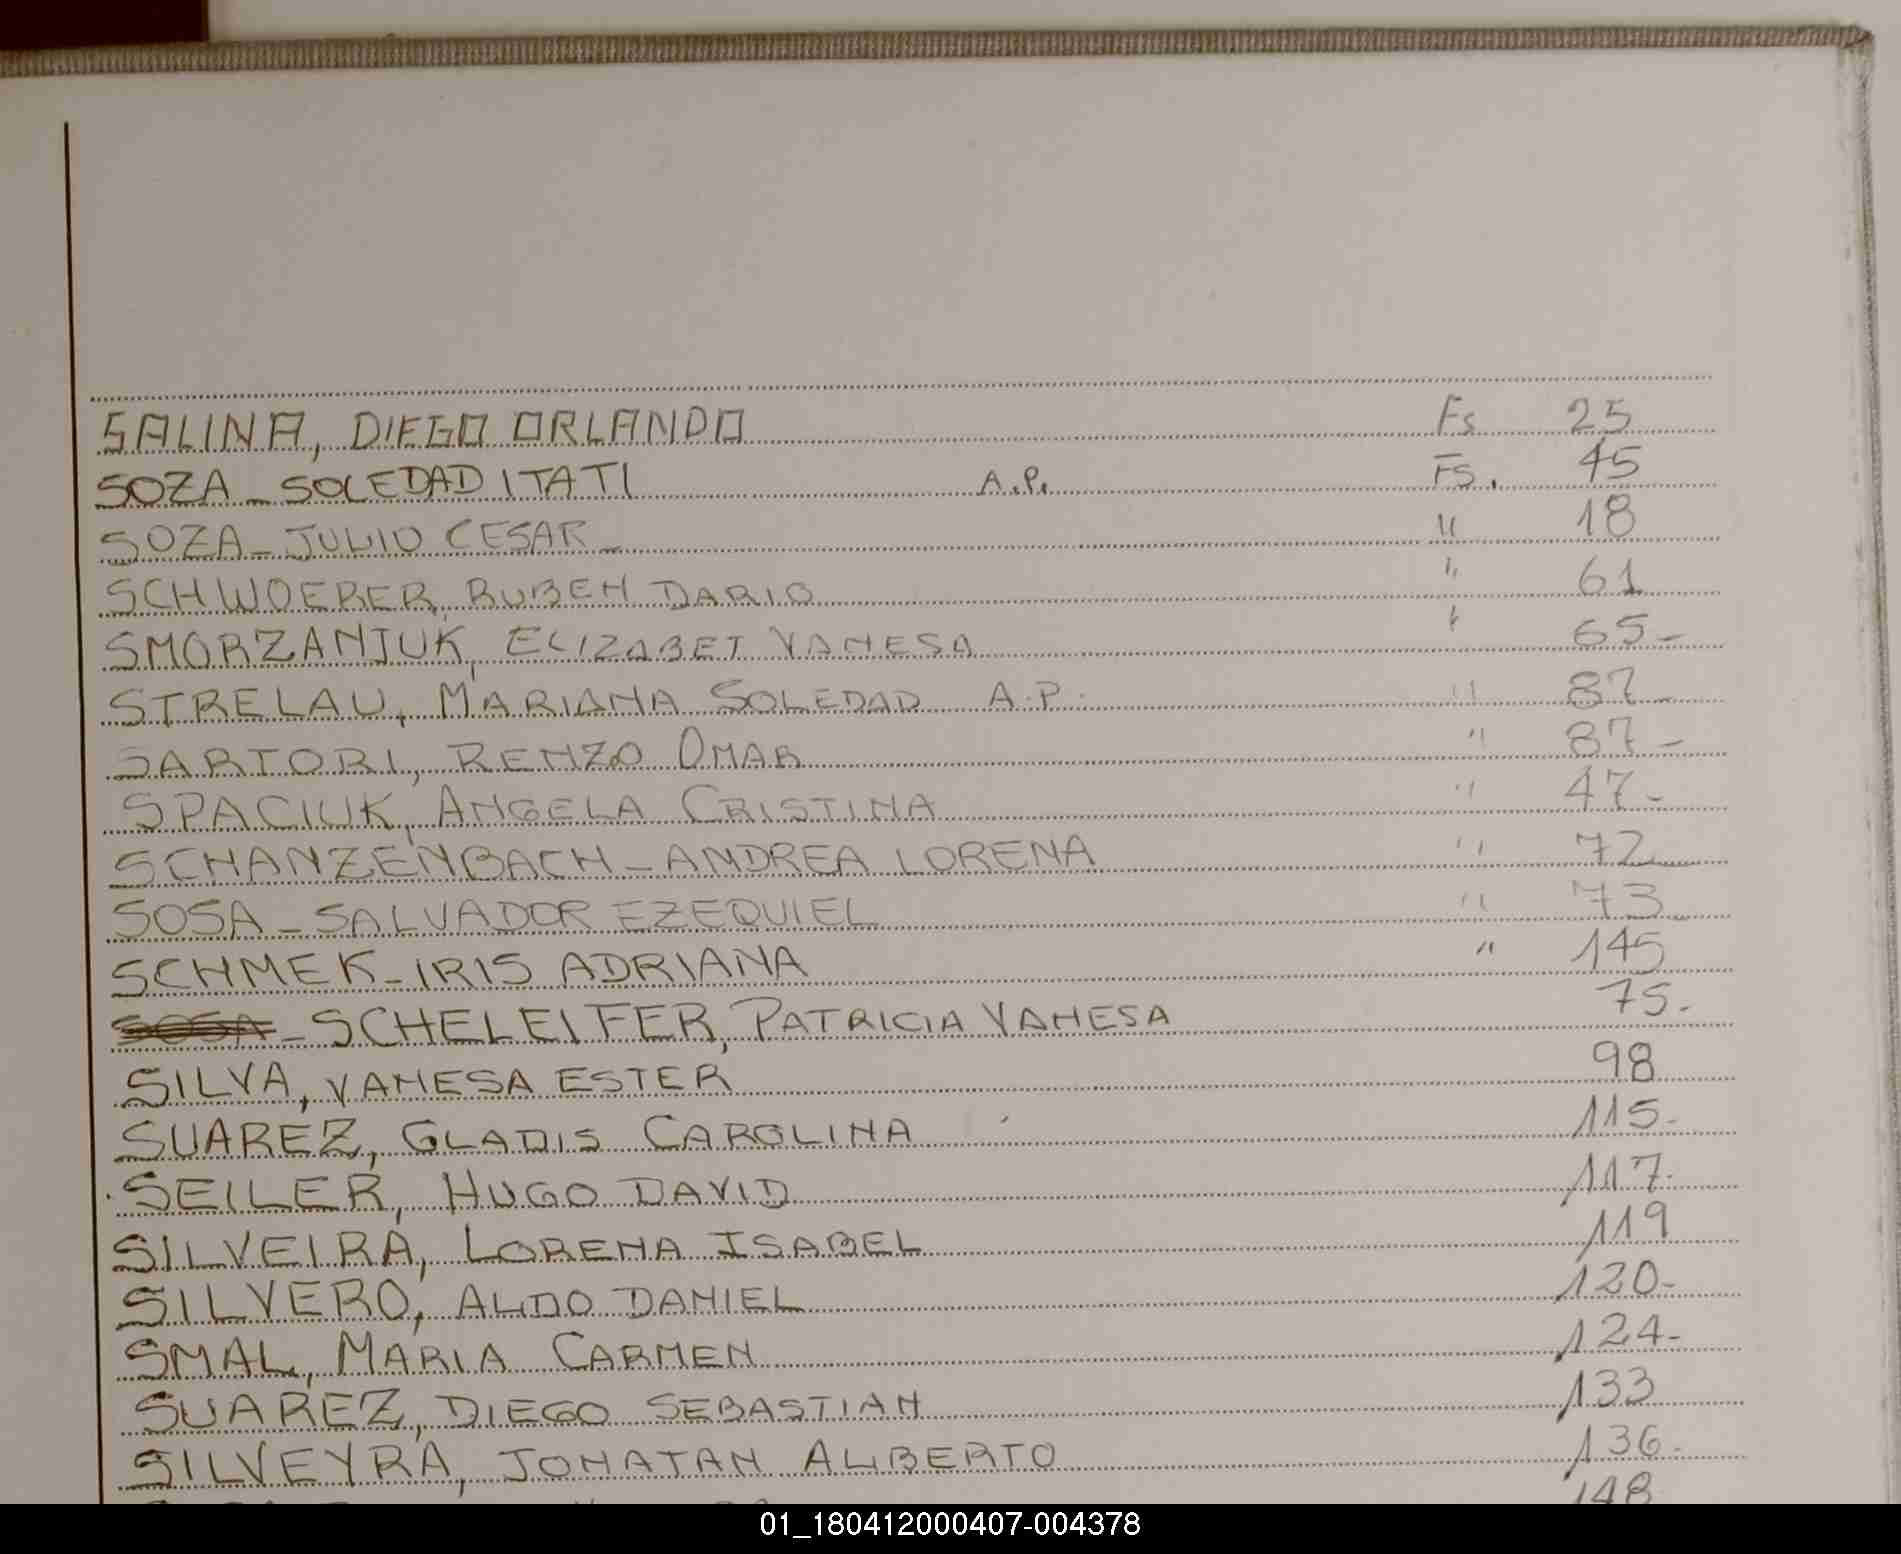 SALINA, DIEGO ORLANDO Fs 25
SOZA - SOLEDAD ITATI A.P. FS. 45
SOZA - JULIO CESAR - " 18
SCHWOERER, RUBEN DARIO " 61
SMORZANIUK, ELIZABET VANESA " 65-
STRELAU, MARIANA SOLEDAD A.P. " 87-
SARTORI, RENZO OMAR " 87-
SPACIUK, ANGELA CRISTINA " 47-
SCHANZENBACH - ANDREA LORENA " 72
SOSA - SALVADOR EZEQUIEL " 73
SCHMEK - IRIS ADRIANA " 145
SOSA - SCHELEIFER, PATRICIA VANESA 75-
SILVA, VANESA ESTER 98
SUAREZ, GLADIS CAROLINA 115-
SEILER, HUGO DAVID 117-
SILVEIRA, LORENA ISABEL 119
SILVERO, ALDO DANIEL 120-
SMAL, MARIA CARMEN 124-
SUAREZ, DIEGO SEBASTIAN 133
SILVEYRA, JONATAN ALBERTO 136-
148
01_180412000407-004378